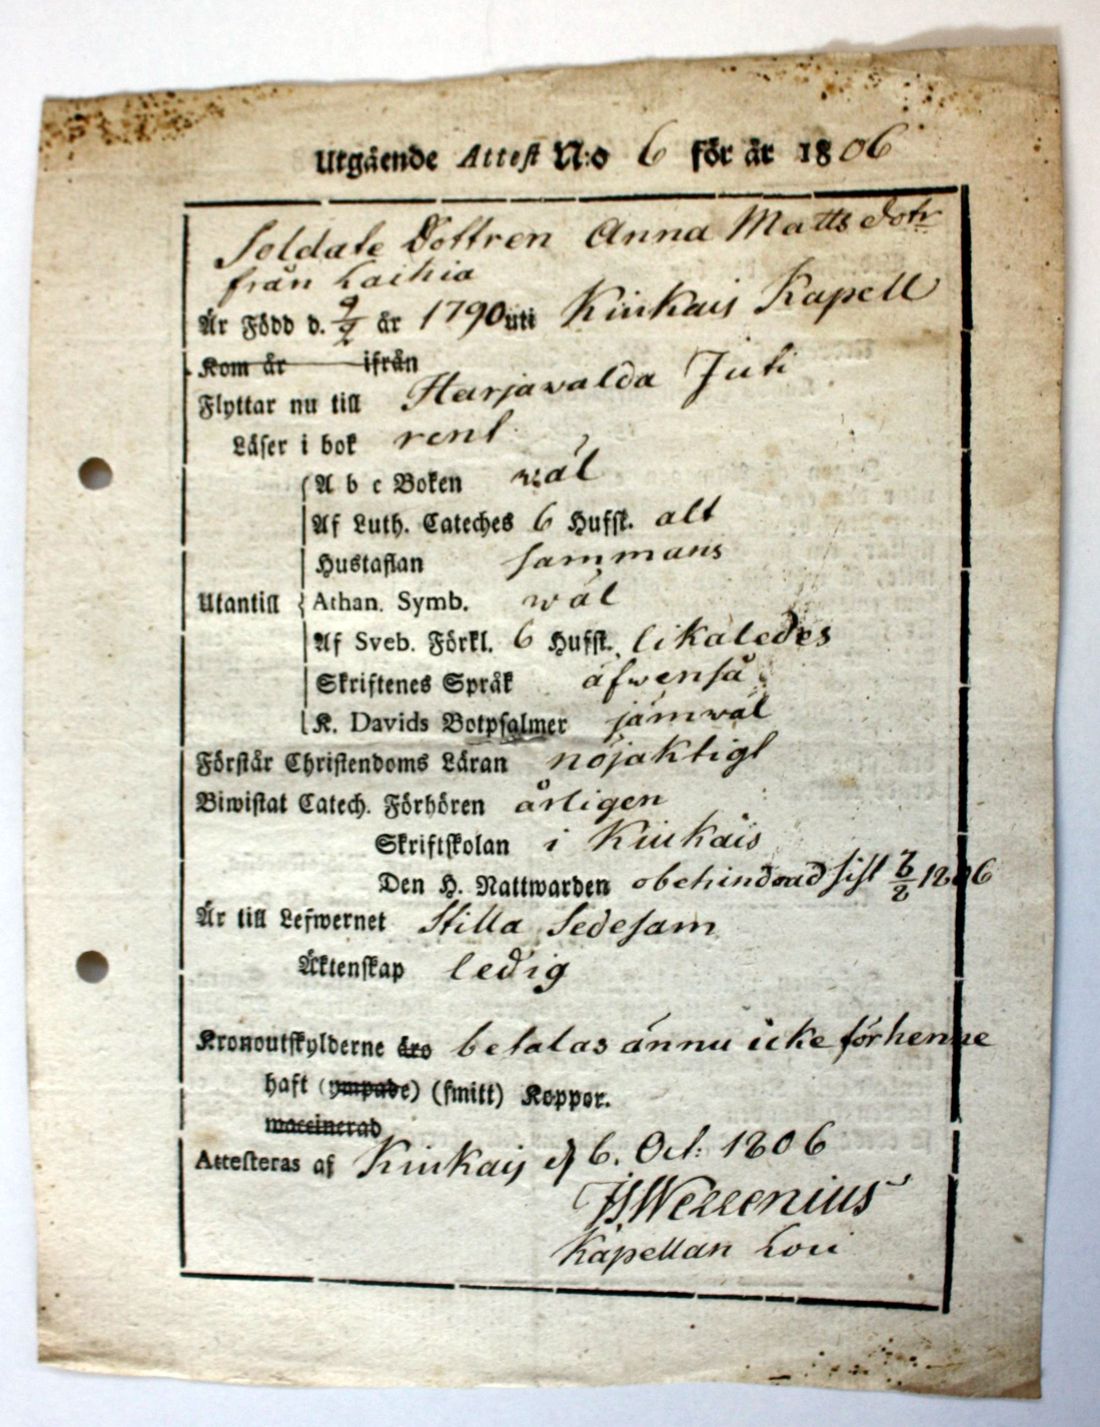 Utgående Attest N:o 6 för år 1806
Soldate Dottren Anna Matts dotr
från Laihia
Är Född d. 9/2 år 1790 uti Kiukais Kapell
Kom år ifrån
Flyttar nu till Harjawalda Juti
Läser i bok rent
A b c Boken wäl
Af Luth. Cateches 6 Hufst. alt
Hustaflan sammans
Utantill Athan. Symb. wäl
Af Sveb. Förkl. 6 Hufst. likaledes
Skriftenes Språk äfwenså
K. Davids Botpsalmer jämwäl
Förstår Christendoms Läran nöjaktigt
Biwistat Catech. Förhören årligen
Skriftskolan i Kiukais
Den H. Nattwarden obehindrad sist 1806
Är till Lefwernet Stilla Sedesam
Äktenskap ledig
Kronoutskylderne äro betalas ännu icke för henne
haft (ympade) (smitt) Koppor.
waccinerad
Attesteras af Kiukais d 6. Oct: 1806
Wellenius
Kapellan Loci